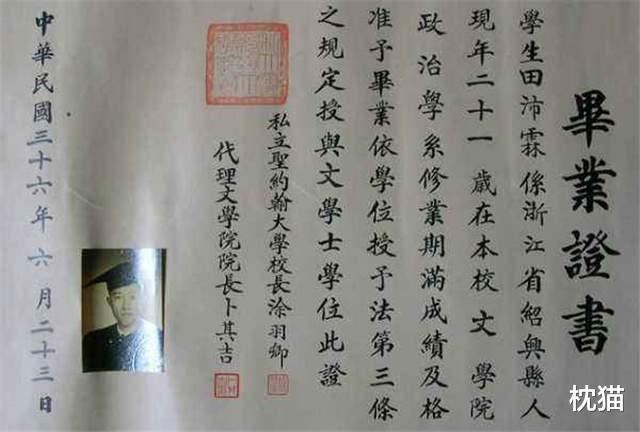 畢業證書
學生田沛霖係浙江省紹興縣人
現年二十一歲在本校文學院
政治學系修業期滿成績及格
准予畢業依學位授予法第三條
之規定授與文學士學位此證
私立聖約翰大學校長涂羽卿
代理文學院院長卜其吉
中華民國三十六年六月二十三日
枕猫